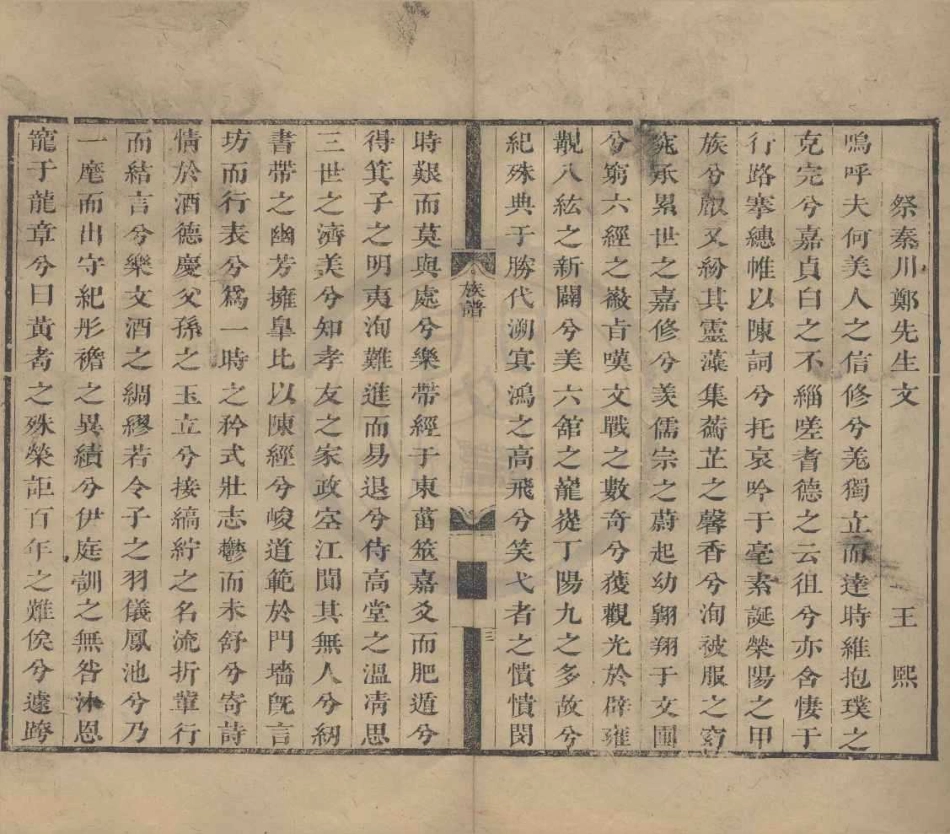 祭秦川鄭先生文 王熙
嗚呼夫何美人之信修兮羗獨立而違時維抱璞之
克完兮嘉貞白之不緇嗟耆德之云徂兮亦含悽于
行路搴繐帷以陳詞兮托哀吟于毫素誕滎陽之甲
族兮殷又紛其靈藻集蘅芷之馨香兮洵被服之窈
窕承累世之嘉修兮羨儒宗之蔚起幼翱翔于文圃
兮窮六經之嶽㫖嘆文戰之數奇兮獲觀光於辟雍
觀八紘之新闢兮美六舘之巃嵸丁陽九之多故兮
紀殊典于勝代溯寘鴻之高飛兮笑弋者之憒憒閔
族譜
三
時艱而莫與處兮樂帶經于東菑筮嘉爻而肥遁兮
得箕子之明夷洵難進而易退兮侍高堂之溫凊思
三世之濟美兮知孝友之家政宻江聞其無人兮紉
書帶之幽芳擁臯比以陳經兮峻道範於門墻旣言
坊而行表兮爲一時之矜式壯志鬱而未舒兮寄詩
情於酒德慶父孫之玉立兮接縞紵之名流折輩行
而結言兮樂文酒之綢繆若令子之羽儀鳳池兮乃
一麾而出守紀彤襜之異績兮伊庭訓之無咎沐恩
寵于龍章兮曰黃耇之殊榮詎百年之難俟兮遽跨